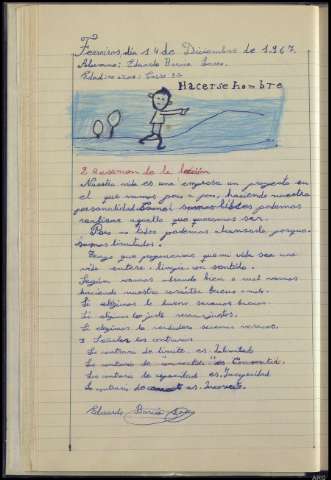 Ferreiros, día 14 de Diciembre de 1.967.
Alumno: Eduardo García
Hacerse hombre
2 Resumen de la lección
Nuestra vida es una empresa un proyecto en
el que vamos poco a poco, haciendo nuestra
personalidad. Como somos libres podemos
realizar aquello que queremos ser.
Pero no todo podemos alcanzarlo porque
somos limitados.
Tengo que proponerme que mi vida sea una
vida entera, limpia con sentido.
Según vamos obrando bien o mal vamos
haciendo nuestro carácter bueno o malo.
Si elegimos lo bueno seremos buenos.
Si elegimos lo justo seremos justos.
Si elegimos la verdad seremos veraces.
3 Señalar los contrarios
Lo contrario de limite es. Libertad
Lo contrario de es.
Lo contrario de es. Incapacidad
Lo contrario de es. Incorrecto
Eduardo García
ARG